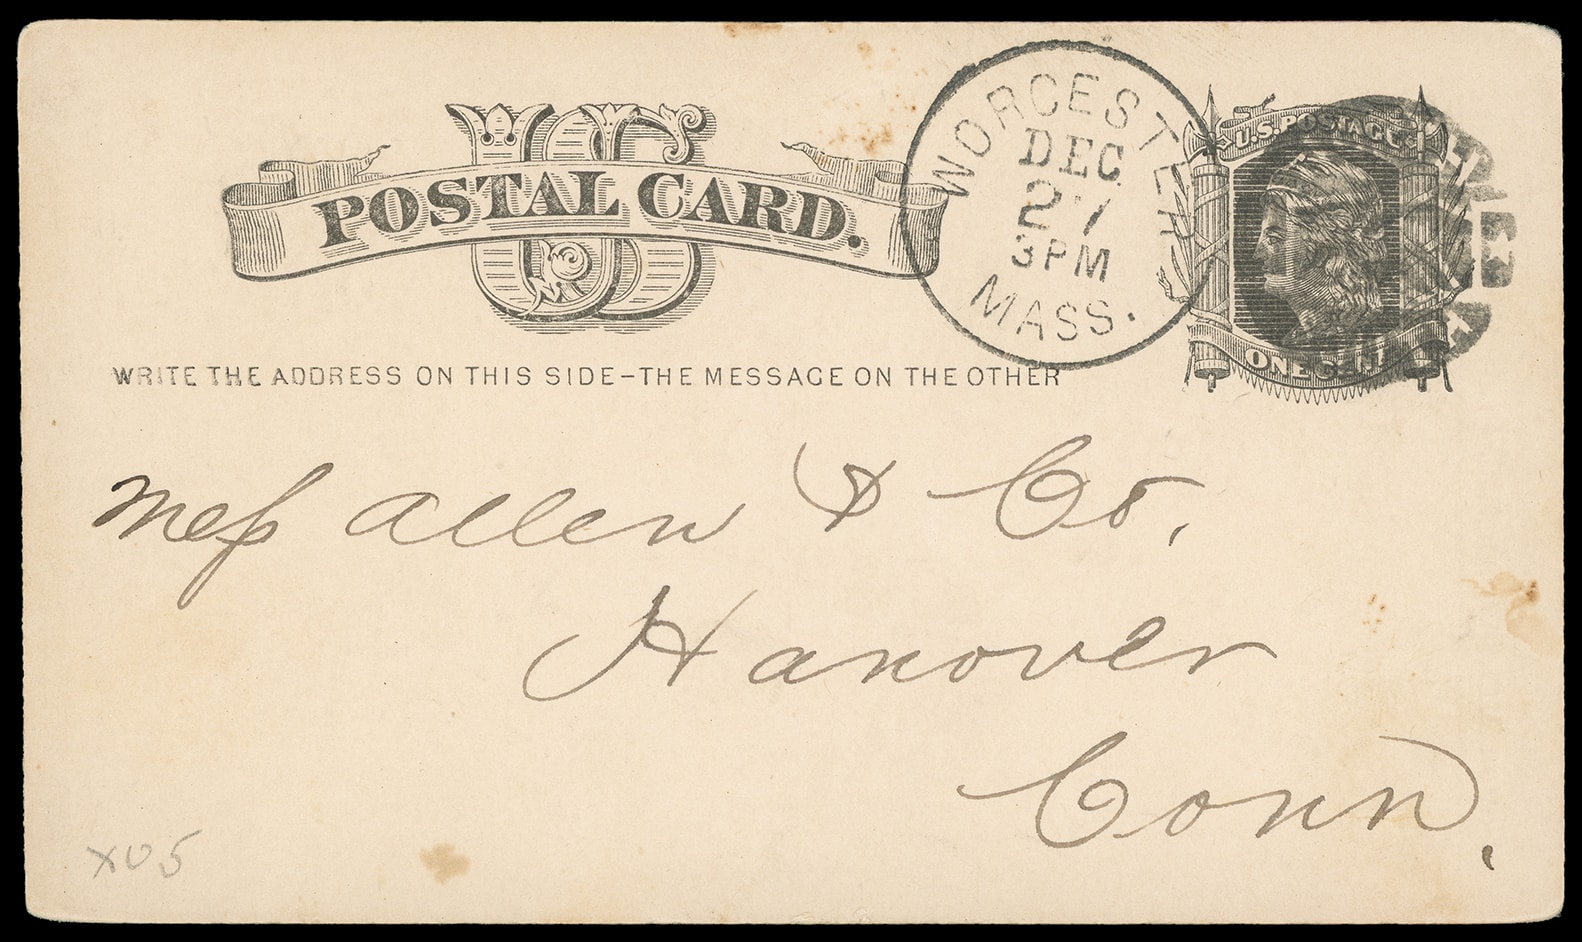 US
POSTAL CARD.
WORCESTER
DEC
27
3 PM
MASS.
U.S. POSTAGE
ONE CENT
WRITE THE ADDRESS ON THIS SIDE-THE MESSAGE ON THE OTHER
Mess Allen & Co.
Hanover
Conn.
XU5